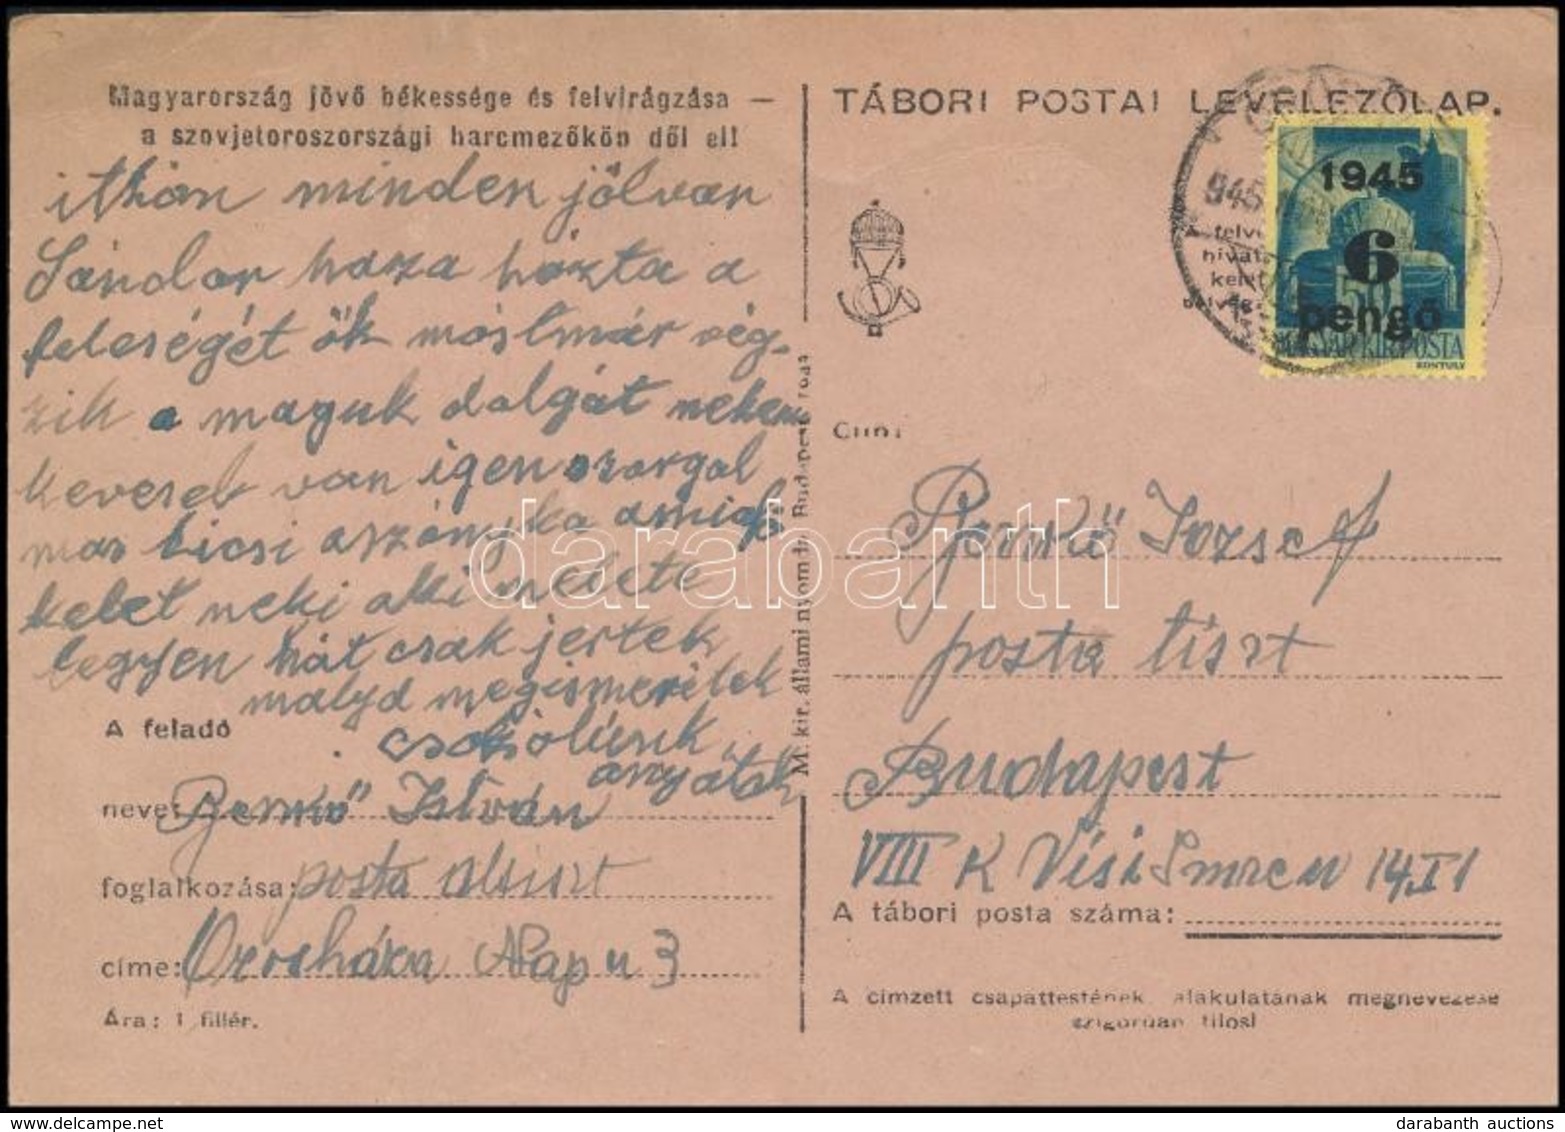 Magyarország jövő békessége és felvirágzása —
a szovjetoroszországi harcmezőkön dől el!
itthon minden jólvan
Sándor haza hozta a
feleségét ők mostmár vég-
zik a maguk dolgát nekem
keveseb van igen szorgal
mas kicsi aszonyka amiaf
kelet neki aki melete
legyen hát csak jertek
malyd megismeritek
csokolunk
anyátok
A feladó
neve: Benkő István
foglalkozása: posta altiszt
címe: Orosháza Nap u 3
Ára: 1 fillér.
M. kir. állami nyomda, Budapest
TÁBORI POSTAI LEVELEZŐLAP.
945
1945
6
pengő
50
MAGYAR KIR. POSTA
KONTULY
Cím:
Benkő Jozsef
posta tiszt
Budapest
VIII K Visi Imre u 14, I 1
A tábori posta száma:
A címzett csapattestének, alakulatának megnevezése
szigorúan tilos!
darabanth
darabanth auctions